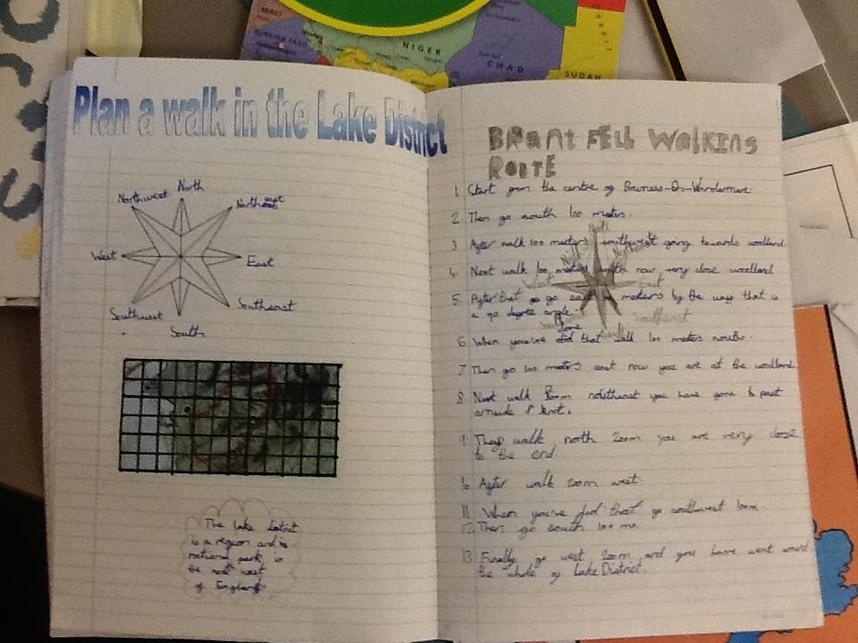 MALI
BURKINA FASO
NIGER
CHAD
SUDAN
Plan a walk in the Lake District
North
Northeast
East
Southeast
South
Southwest
West
Northwest
The Lake District
is a region and is
national park in
the north west
of England
BRant FELL WalKING
ROUTE
1. Start from the centre of Bowness-On-Windermere.
2. Then go south 100 meters.
3. After walk 100 meters southwest going towards woodland
4. Next walk 100 meters south now very close woodland
5. After that go go east meters by the way that is
a 90 degree angle.
6. When you've did that walk 100 meters
done
7. Then go 100 meters east now you are at the woodland
8. Next walk northeast you have gone to past
9. Then walk north 200m you are very close
to the end.
10. After walk 200m west.
11. When you've did that go southwest 100m.
12. Then go south 100 m.
13. Finally go west 200m and you have went around
the whole of Lake District.
East
Southeast